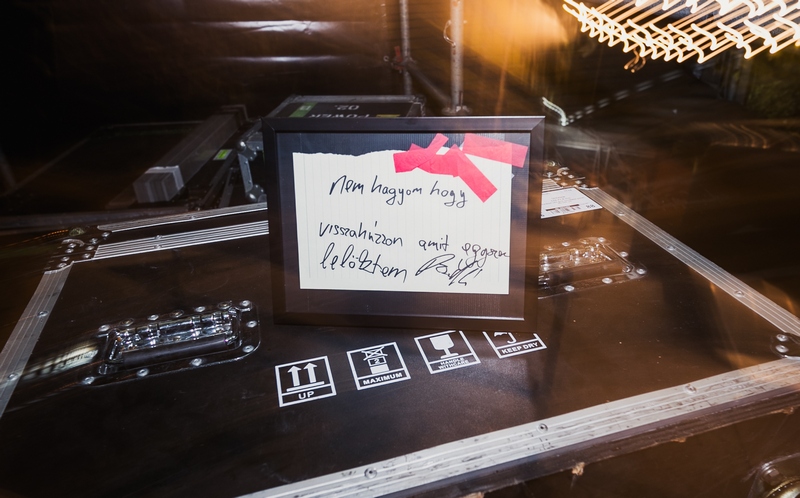 POWER
02.
Nem hagyom hogy
visszahúzzon amit egyszer
lelőttem
UP
2
MAXIMUM
HANDLE
WITH CARE
KEEP DRY